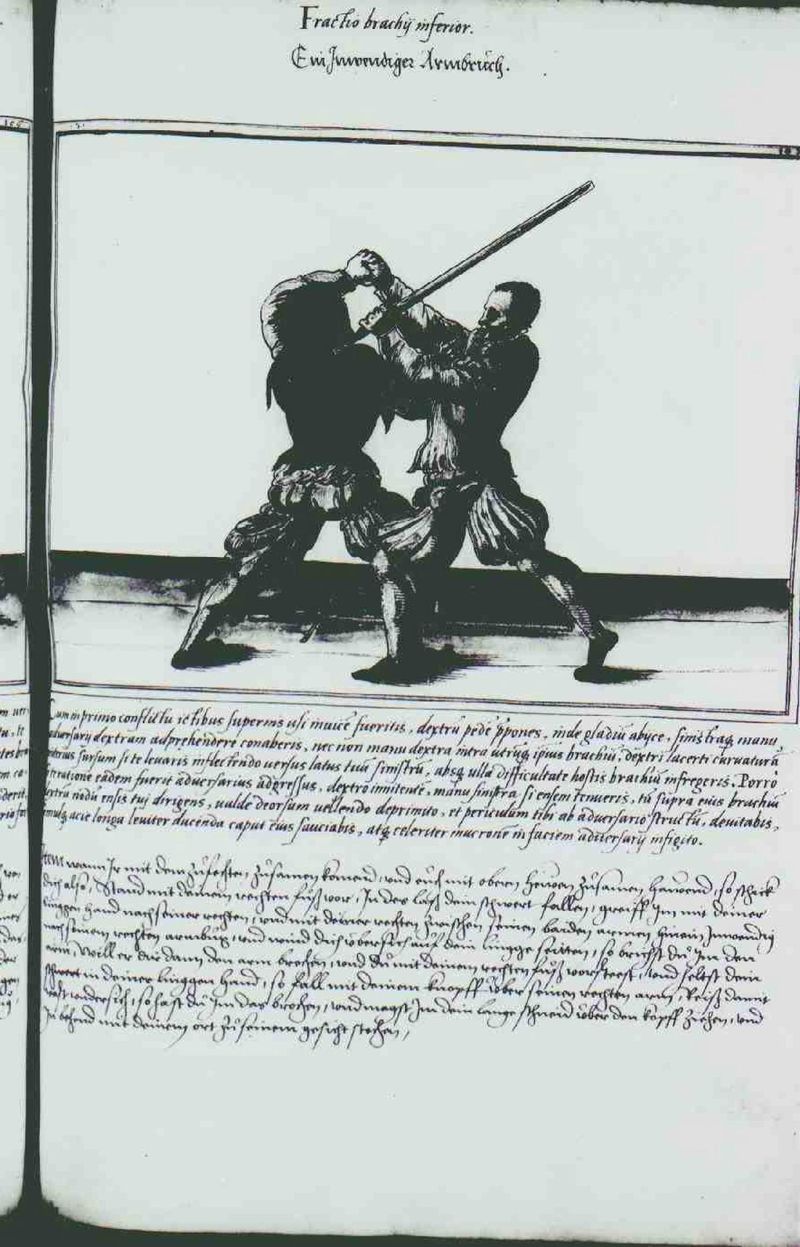 Fractio brachij inferior.
Ein Inwendiger Armbruch.
Cum in primo conflictu ictibus supernis usi inuicē fueritis, dextrū pedē ꝓpones, inde gladiū abyce, sinistraq̃ manu
adversarij dextram adprehendere conaberis, nec non manu dextra intra utrūq̃ ipius brachiū, dextri lacerti curvaturā
sursum si te levaris inflectendo versus latus tuū sinistrū, absq̃ ulla difficultate hostis brachiū infregeris. Porrò
eadem fuerit adversarius adgressus, dextro innitente, manu sinistra si ensem tenueris, tū supra eius brachiū
dextrū nodū ensis tui dirigens, ualde deorsum uellendo deprimito, et periculum tibi ab adversario structū, devitabis,
simulq̃ acie longa leviter ducenda caput eius sauciabis, atq̃ celeriter mucronē in faciem adversarij infigito.
Item wann Ir mit dem zufechten zusamen komend, und euch mit obern hewen zusamen hawend, so schick
dich also, Stand mit deinem rechten fuß vor, In des laß dein schwert fallen, greiff Im mit deiner
linggen hand nach seiner rechten, und mit deiner rechten zwischen seinen baiden armen hinein Inwendig
nach seinem rechten armbug, und wind dich übersich auf dein lingge seitten, so brichst du Im den
arm, Will er dir dann den arm brechen, und du mit deinem rechten fuß vorsteest, und heltst dein
schwert in deiner linggen hand, so fall mit deinem knopff über seinen rechten arm, Reiß damit
undersich, so hast du Im das brochen, und magst Im dein lange schneid über den kopff ziehen, und
Im behend mit deinem ort zu seinem gesicht stechen,